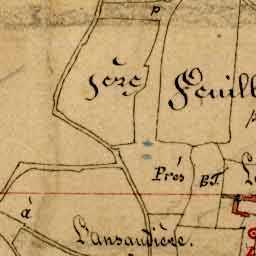 P
Feuill
Prés
B.T.
L
à
Lansaudière.